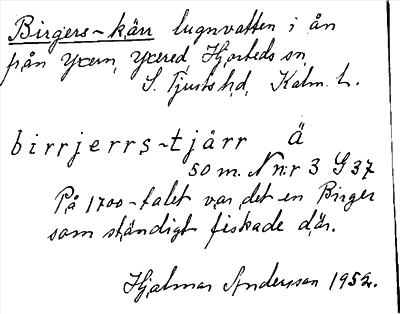 Birgers-kärr lugnvatten i ån
från Yxern, Yxered, Hjorteds sn,
S. Tjusts hd, Kalm. l.
birrjerrs-tjärr Ä
50 m. N n:r 3 G 37
På 1700-talet var det en Birger
som ständigt fiskade där.
Hjalmar Andersson 1952.